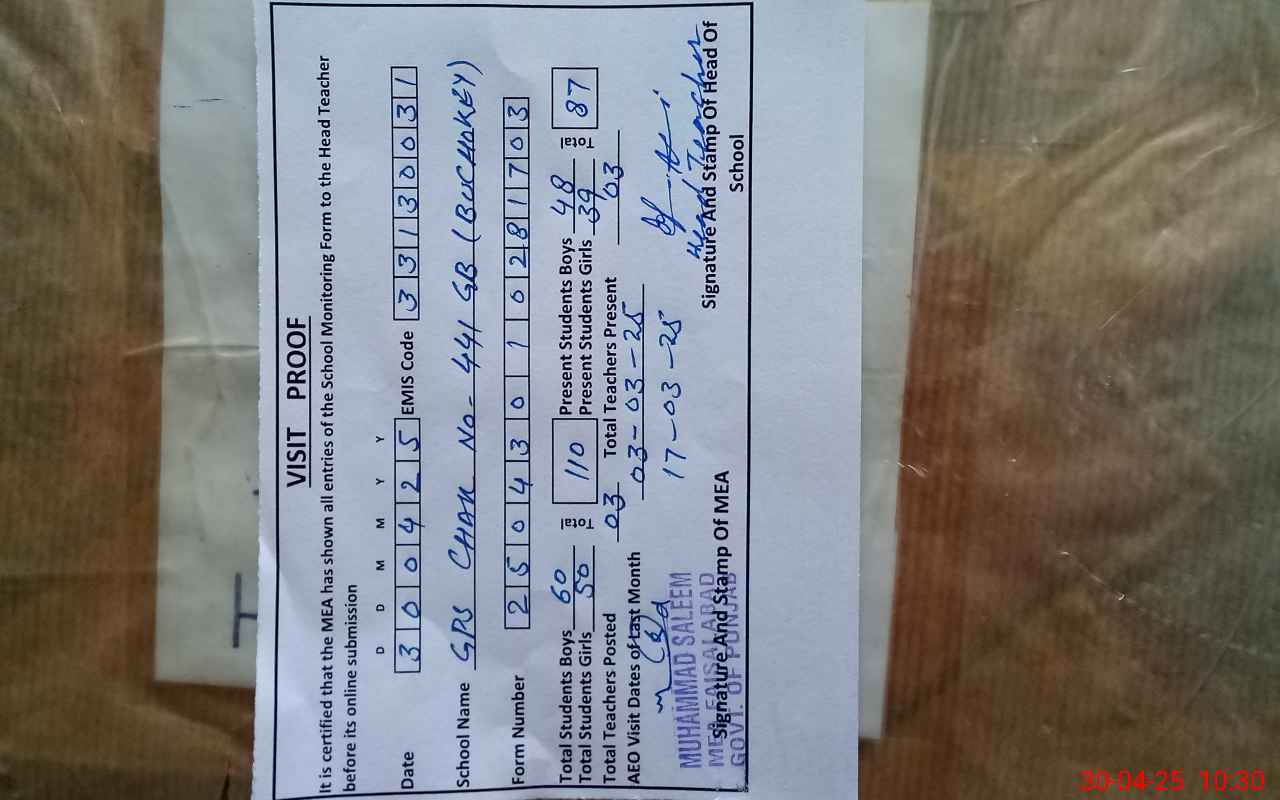 VISIT PROOF
It is certified that the MEA has shown all entries of the School Monitoring Form to the Head Teacher
before its online submission
D D M M Y Y
Date 300425 EMIS Code 33130031
School Name GPS CHAK No- 441 GB (BUCHOKEY)
Form Number 25043010281703
Total Students Boys 60 Total 110 Present Students Boys 48 Total 87
Total Students Girls 50 Present Students Girls 39
Total Teachers Posted 03 Total Teachers Present 03
AEO Visit Dates of Last Month 03-03-25
17-03-25
Head Teacher
MUHAMMAD SALEEM
MEA FAISALABAD
GOVT. OF PUNJAB
Signature And Stamp Of MEA
Signature And Stamp Of Head Of
School
30-04-25 10:30